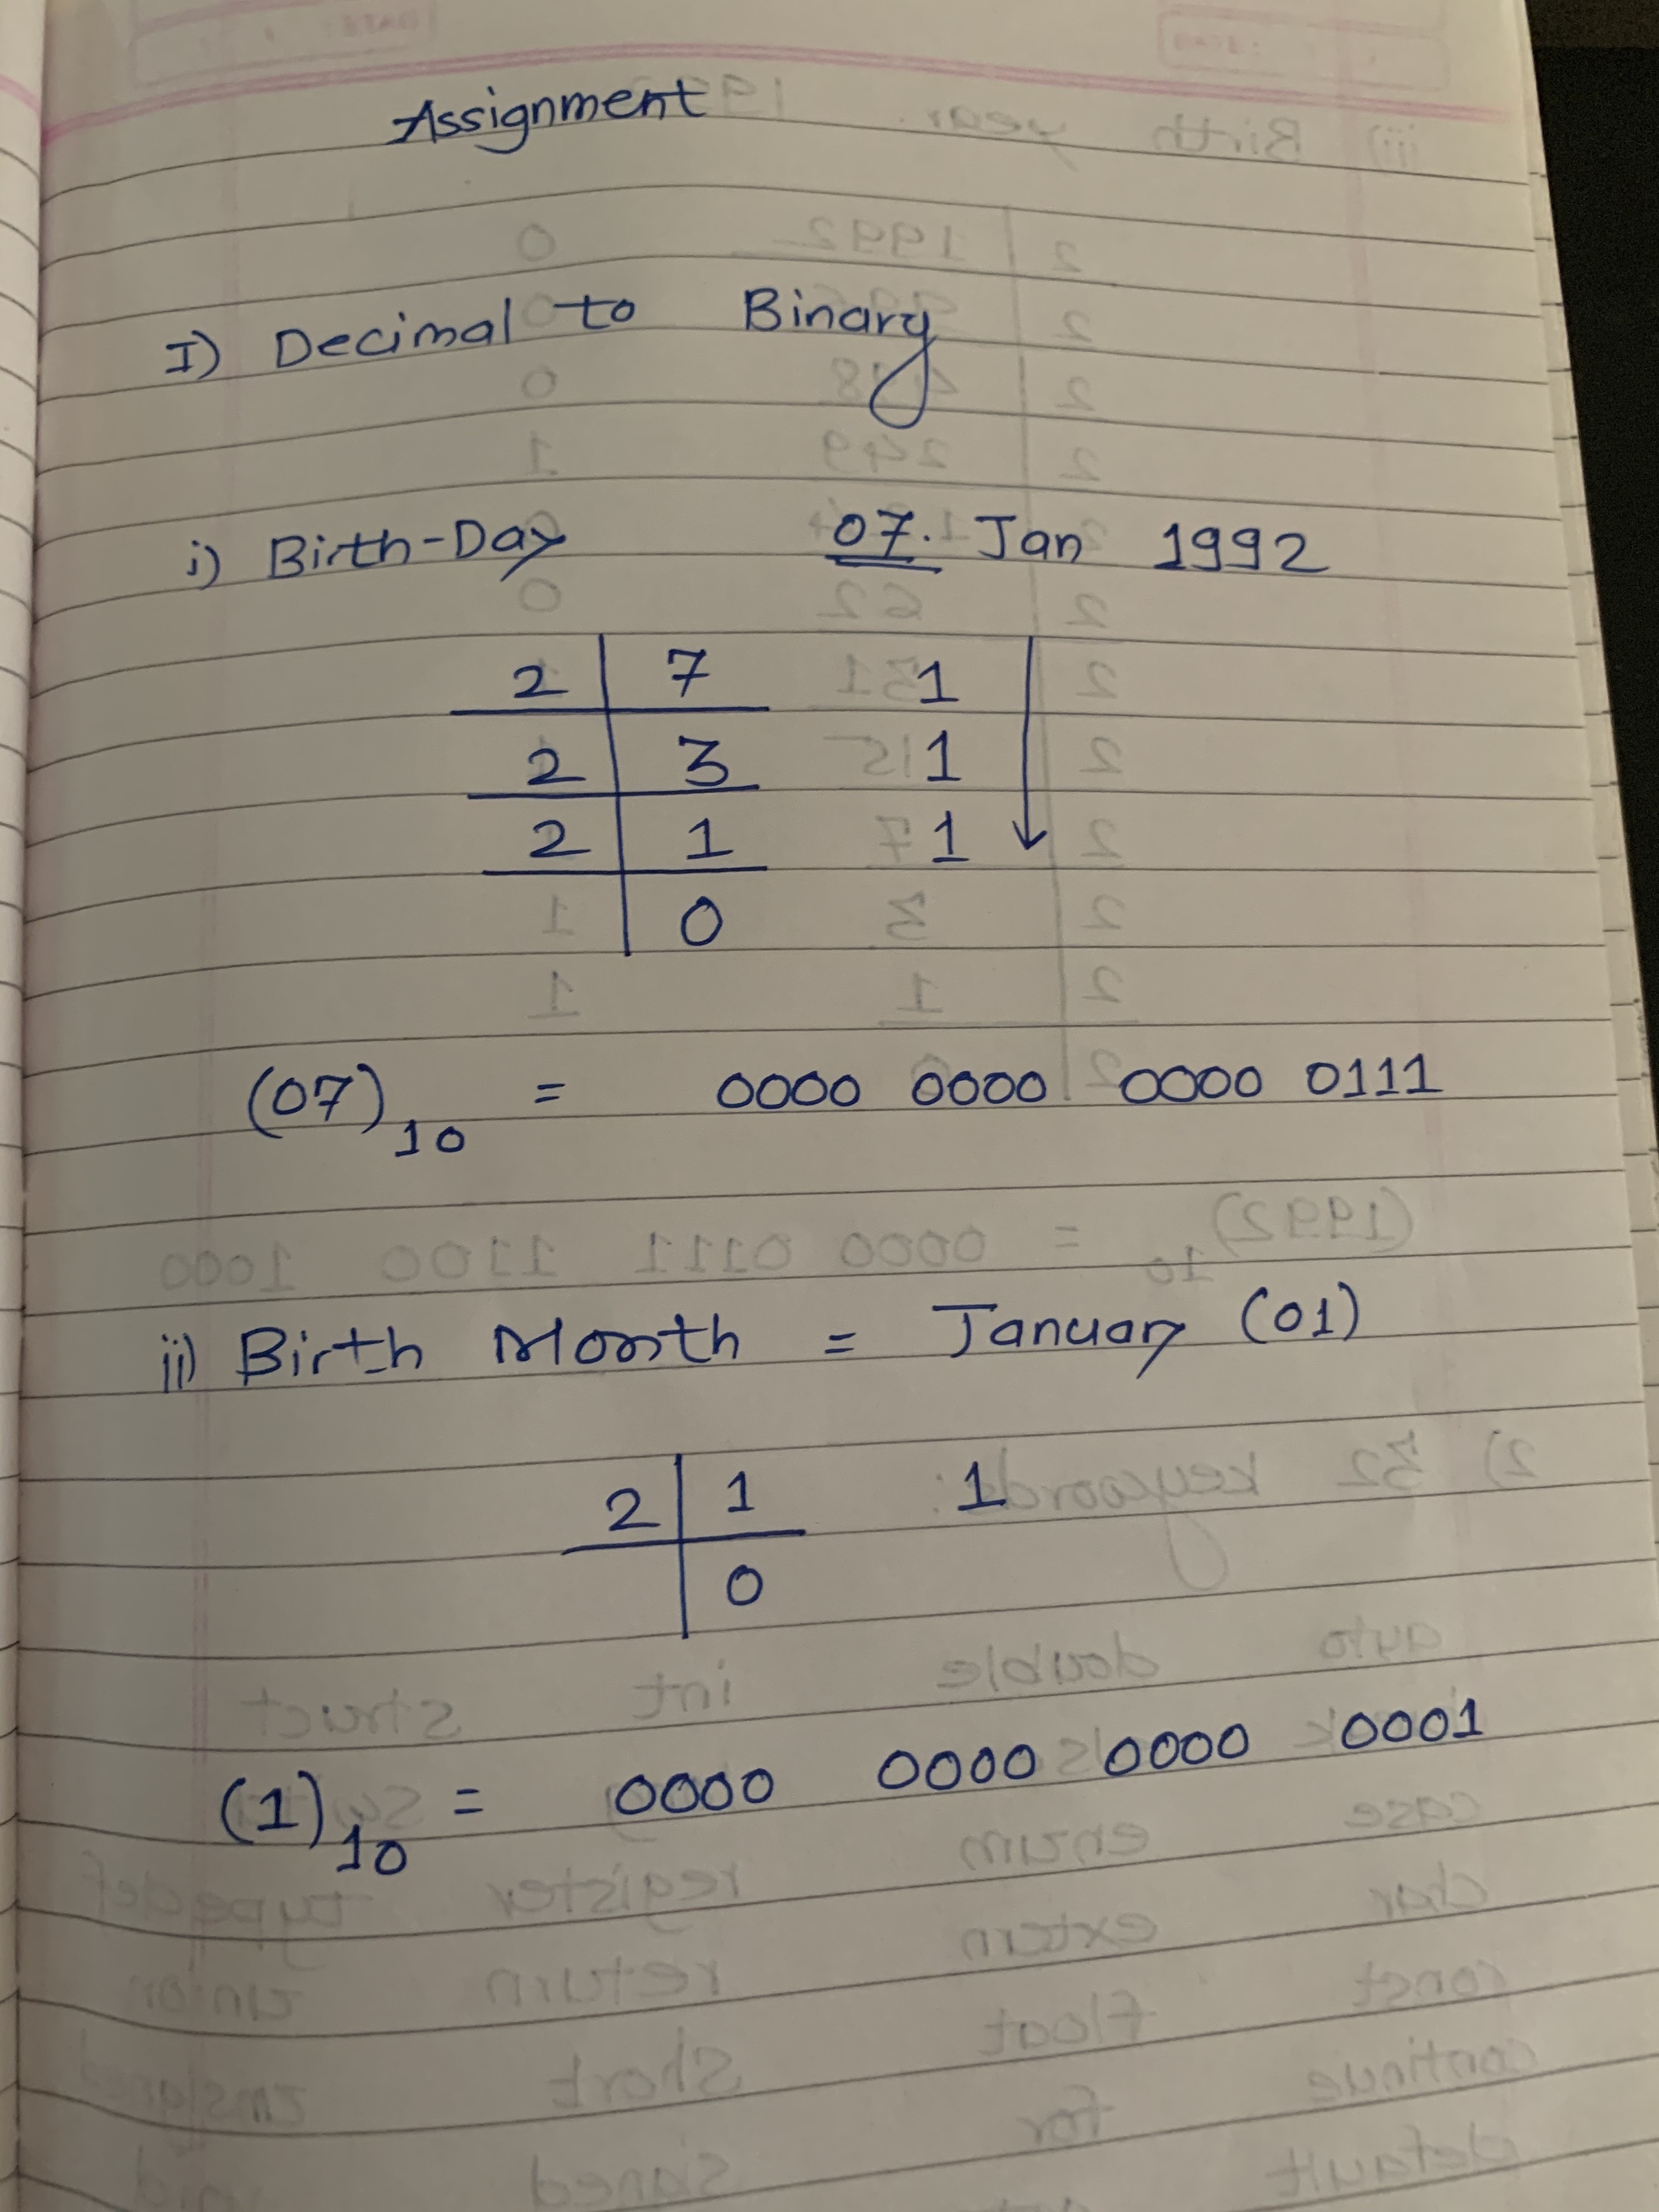 Assignment
I) Decimal to Binary
i) Birth-Day 07. Jan 1992
2 7 1
2 3 1
2 1 1
0
(07)10 = 0000 0000 0000 0111
ii) Birth Month = January (01)
2 1 1
0
(1)10 = 0000 0000 0000 0001